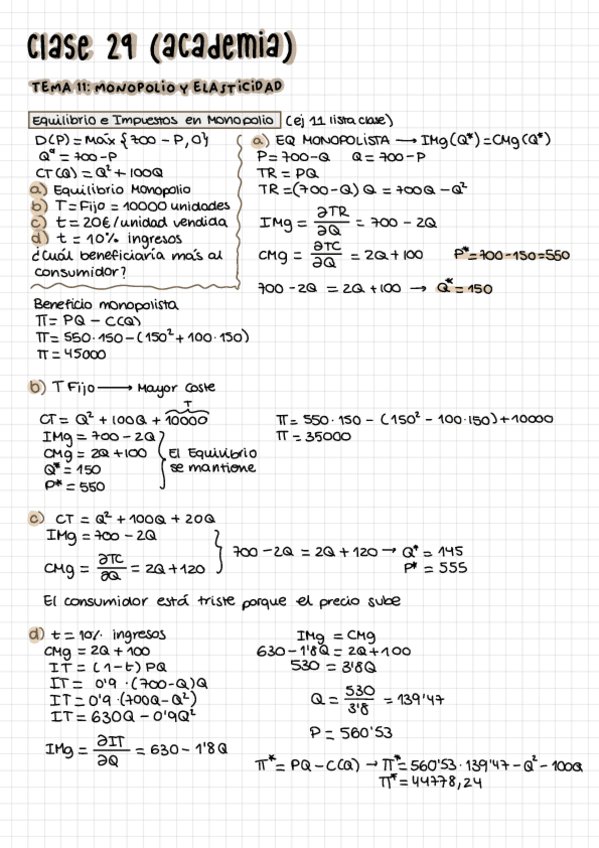 Clase 29 (academia)
TEMA 11: MONOPOLIO Y ELASTICIDAD
Equilibrio e Impuestos en Monopolio (ej 11 lista clase)
D(P) = Máx {700 - P, 0}
Qᵈ = 700 - P
CT(Q) = Q² + 100Q
a) Equilibrio Monopolio
b) T = Fijo = 10000 unidades
c) t = 20€/unidad vendida
d) t = 10% ingresos
¿Cuál beneficiaría más al
consumidor?
a) EQ MONOPOLISTA → IMg(Q*) = CMg(Q*)
P = 700 - Q Q = 700 - P
TR = PQ
TR = (700 - Q) Q = 700Q - Q²
IMg = ∂TR/∂Q = 700 - 2Q
CMg = ∂TC/∂Q = 2Q + 100 P* = 700 - 150 = 550
700 - 2Q = 2Q + 100 → Q* = 150
Beneficio monopolista
Π = PQ - C(Q)
Π = 550·150 - (150² + 100·150)
Π = 45000
b) T Fijo → Mayor Coste
T
CT = Q² + 100Q + 10000
IMg = 700 - 2Q
CMg = 2Q + 100
Q* = 150
P* = 550
El Equilibrio
se mantiene
Π = 550·150 - (150² - 100·150) + 10000
Π = 35000
c) CT = Q² + 100Q + 20Q
IMg = 700 - 2Q
CMg = ∂TC/∂Q = 2Q + 120
700 - 2Q = 2Q + 120 → Q* = 145
P* = 555
El consumidor está triste porque el precio sube
d) t = 10% ingresos
CMg = 2Q + 100
IT = (1 - t) PQ
IT = 0'9 · (700 - Q)Q
IT = 0'9 · (700Q - Q²)
IT = 630Q - 0'9Q²
IMg = ∂IT/∂Q = 630 - 1'8Q
IMg = CMg
630 - 1'8Q = 2Q + 100
530 = 3'8Q
Q = 530/3'8 = 139'47
P = 560'53
Π* = PQ - C(Q) → Π* = 560'53 · 139'47 - Q² - 100Q
Π* = 44778,24